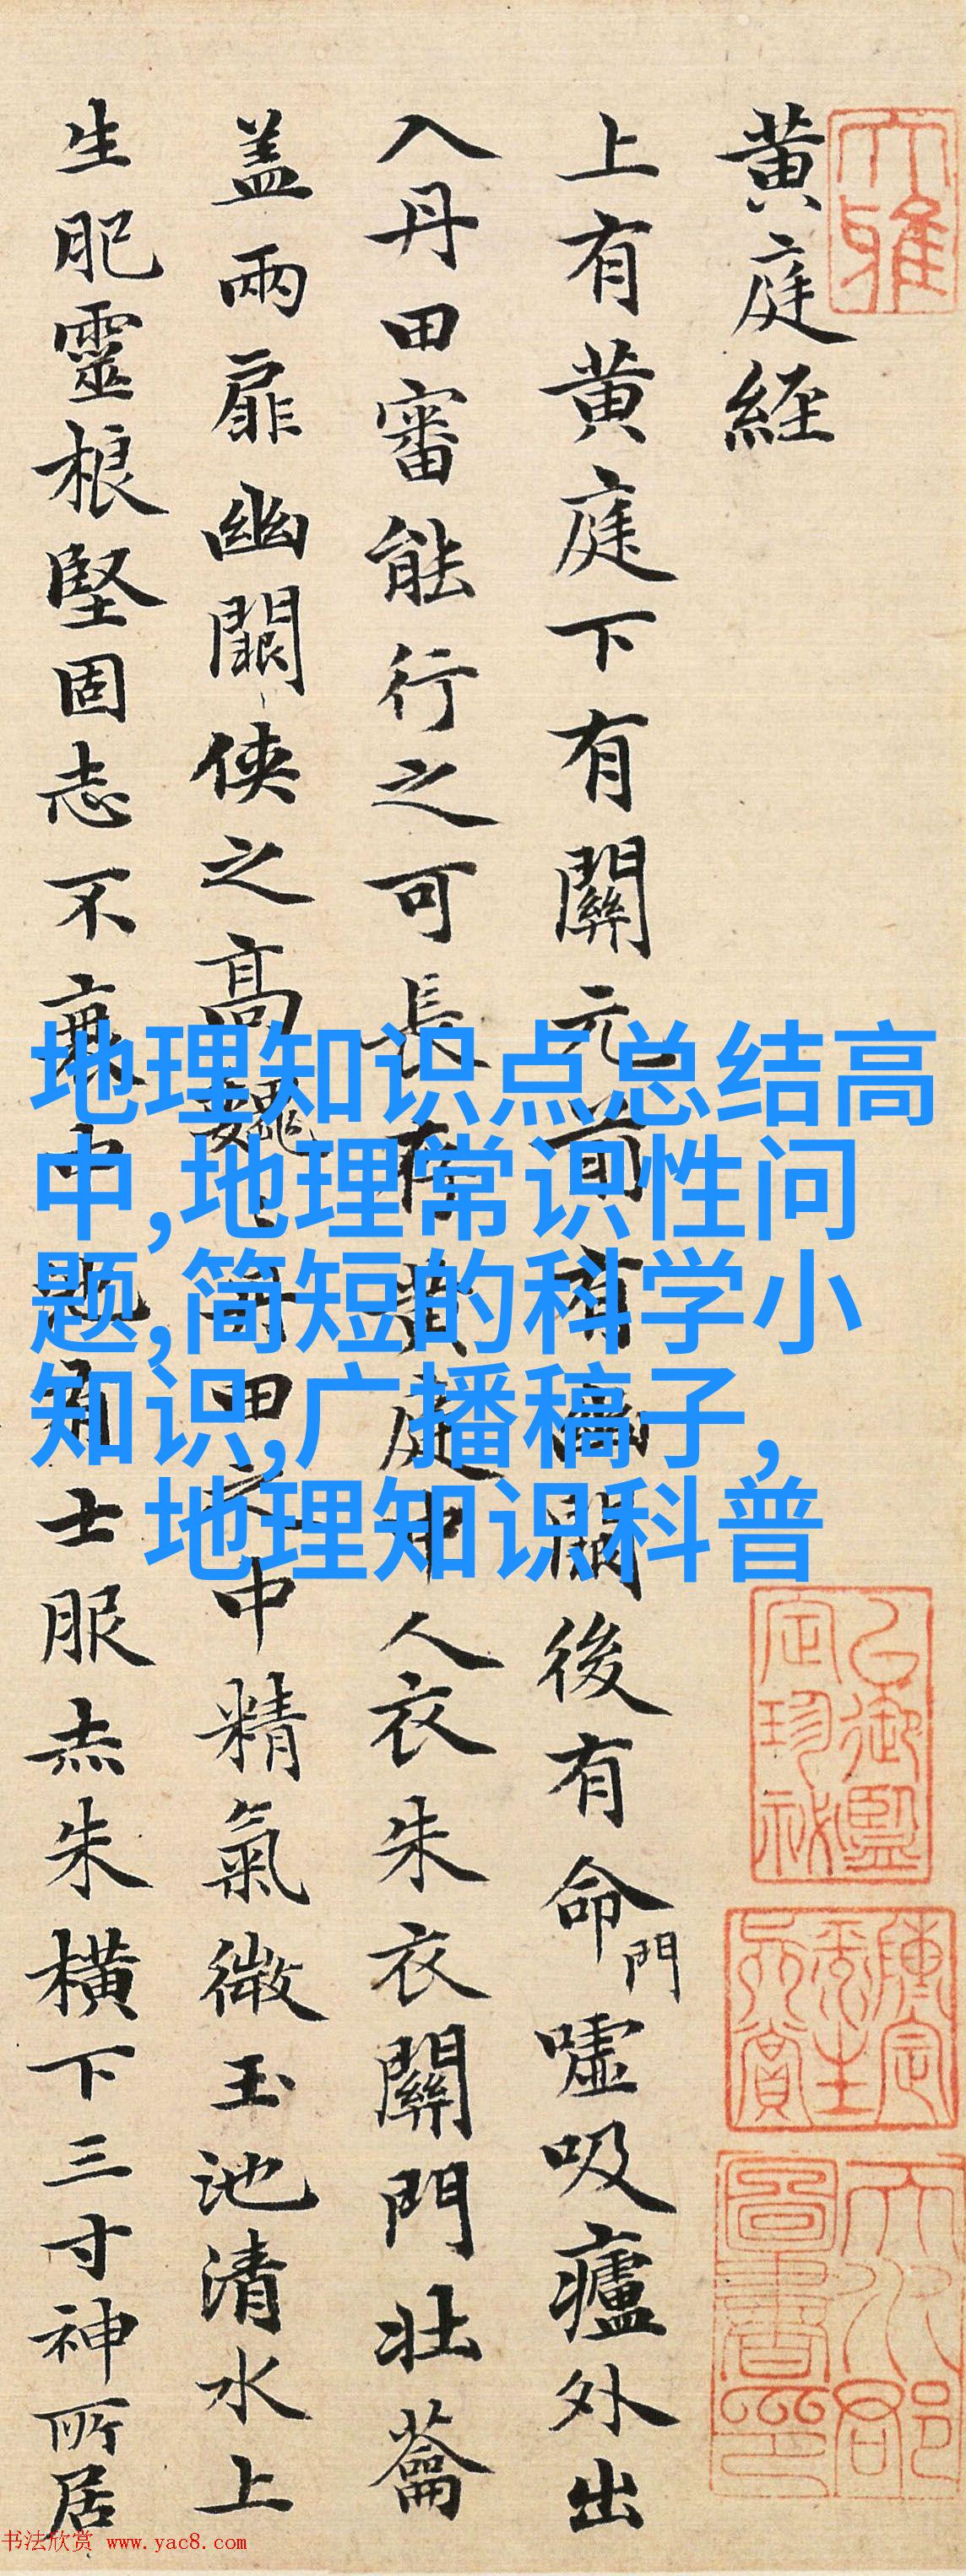 黄庭经
上有黄庭下有關元前有幽闕後有命門嘘吸廬外出
入丹田審能行之可長存黄庭中人衣朱衣關門壯蘥
盖兩扉幽闕侠之高巍巍丹田之中精氣微玉池清水上
生肥靈根堅固志不衰中池有士服赤朱横下三寸神所居
大雅
地理知识点总结高
中,地理常识性问
题,简短的科学小
知识,广播稿子,
地理知识科普
书法欣赏 www.yac8.com